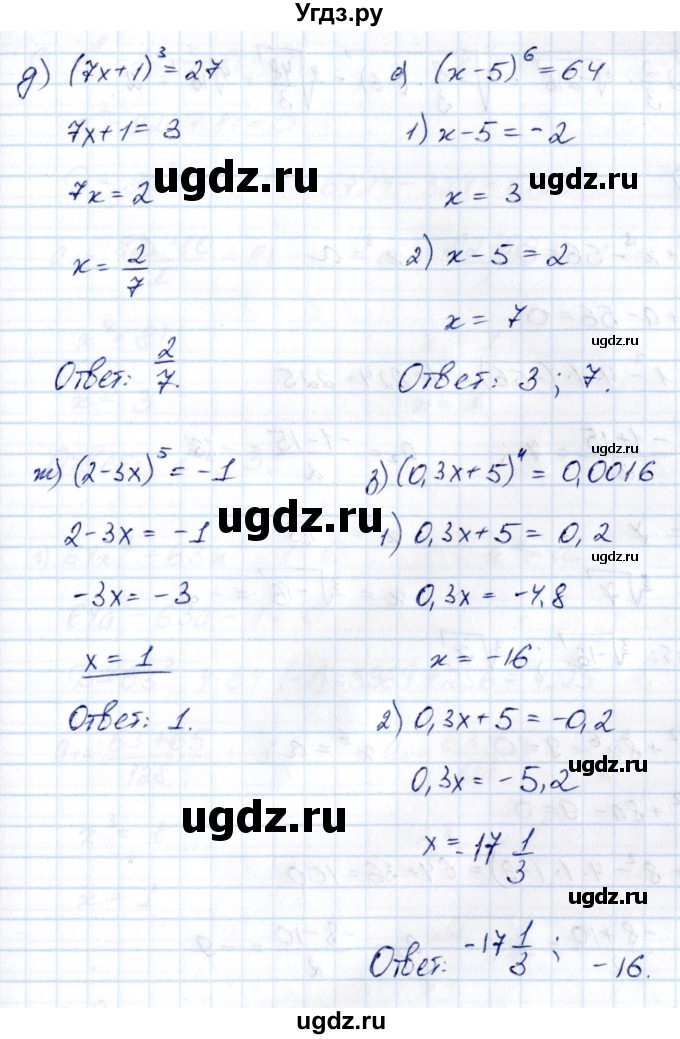 Угдз.ру
д) (7x+1)³ = 27
7x+1 = 3
7x = 2
x = 2/7
Ответ: 2/7.
е) (x-5)⁶ = 64
1) x-5 = -2
x = 3
2) x-5 = 2
x = 7
Ответ: 3 ; 7.
ж) (2-3x)⁵ = -1
2-3x = -1
-3x = -3
x = 1
Ответ: 1.
з) (0,3x+5)⁴ = 0,0016
1) 0,3x+5 = 0,2
0,3x = -4,8
x = -16
2) 0,3x+5 = -0,2
0,3x = -5,2
x = -17 1/3
Ответ: -17 1/3 ; -16.
ugdz.ru
ugdz.ru
ugdz.ru
ugdz.ru
ugdz.ru
ugdz.ru
ugdz.ru
ugdz.ru
ugdz.ru
ugdz.ru
ugdz.ru